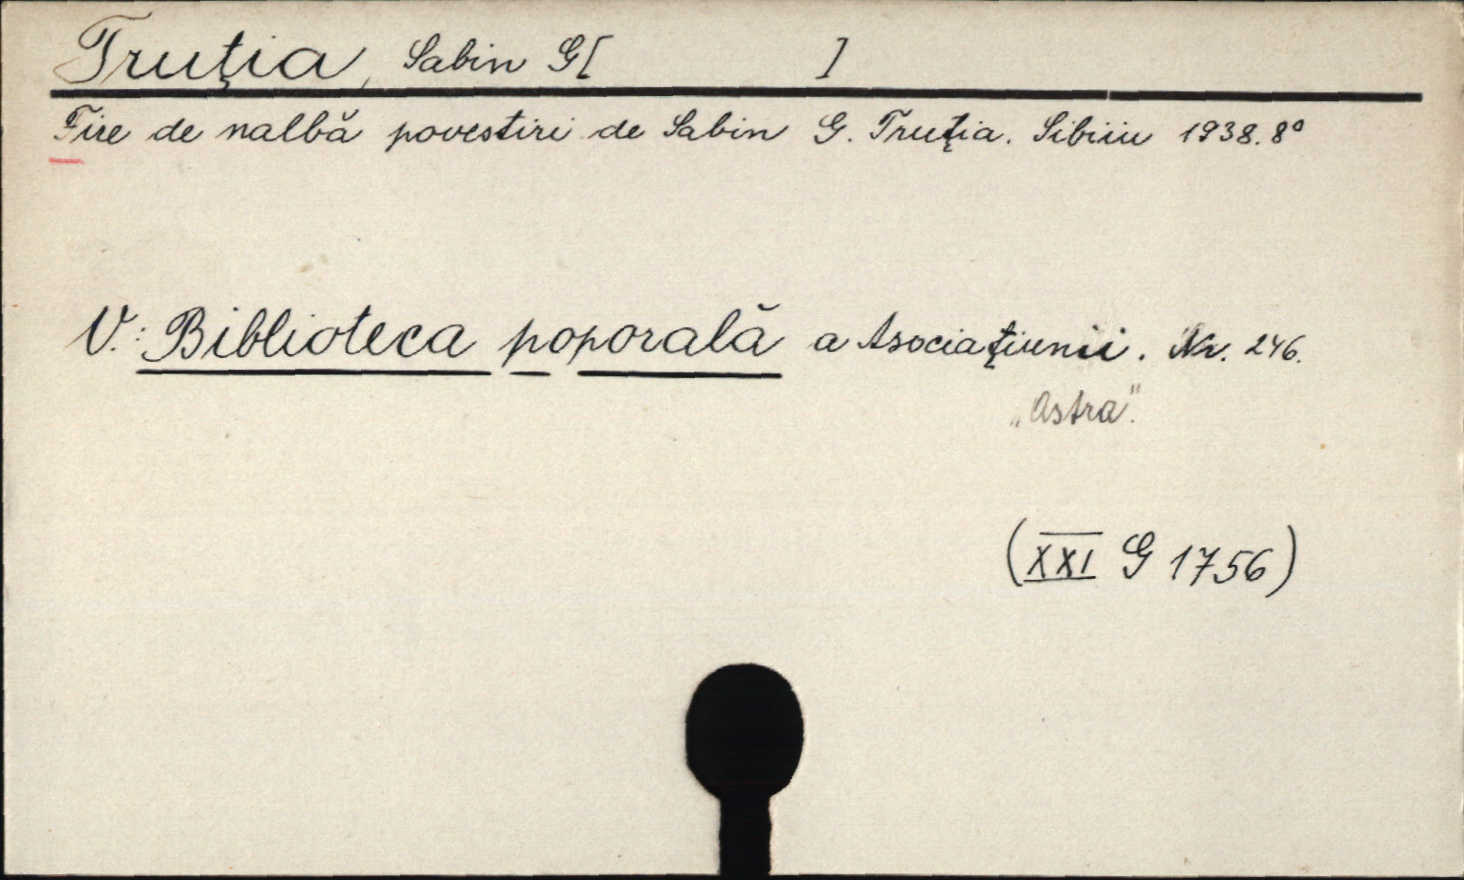 Truţia, Sabin G[ ]
Fire de nalbă povestiri de Sabin G. Truţia. Sibiiu 1938. 8°
V.: Biblioteca poporală a Asociaţiunii. Nr. 246.
„Astra".
(XXI G 1756)